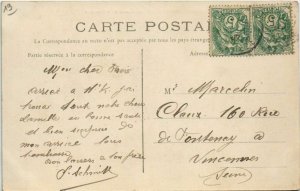 13
CARTE POSTALE
La Correspondance au recto n'est pas acceptée par tous les pays étrangers
Partie réservée à la correspondance
Mon cher
arrivé à 11 ½ j'ai
trouvé tout notre chère
famille en bonne santé
et bien surpris de
mon arrivé
à ton frère
Mr Marcelin
Claux 160 Rue
de Fontenay à
Vincennes
(Seine)